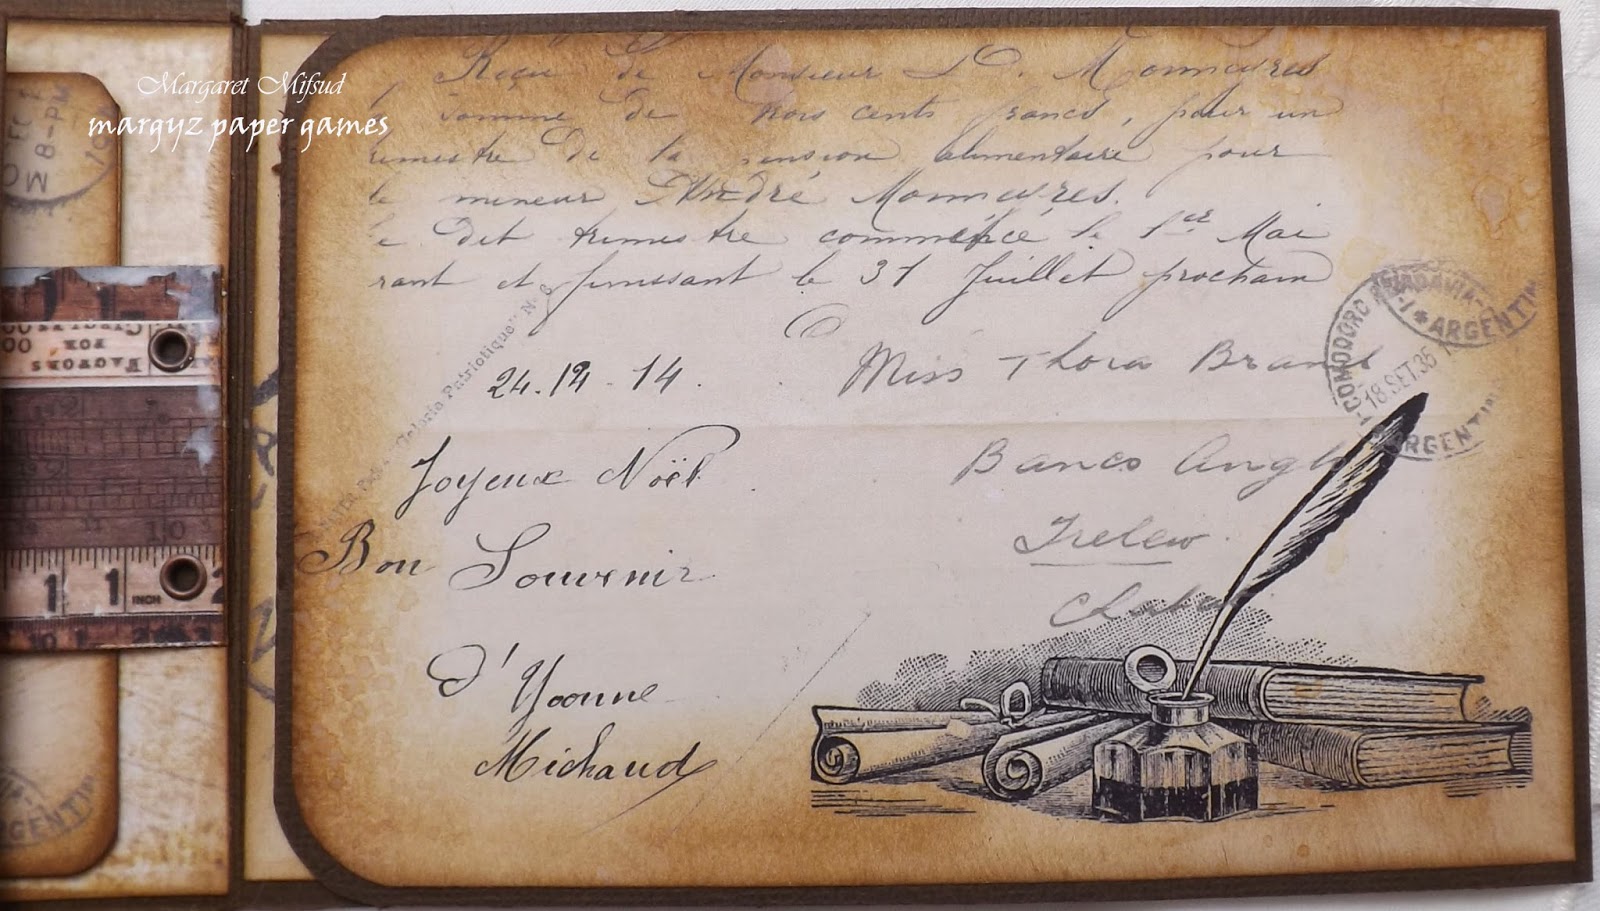 Margaret Mifsud
margyz paper games
Reçu de Monsieur D. Monnavres
Somme de trois cents francs, pour un
trimestre de la pension alimentaire pour
le mineur André Monnavres.
Le dit trimestre commencé le 1er Mai
rant et finissant le 31 Juillet prochain
24.12.14.
Miss Thora Brand
"Gloria Patriotique" No 6
Joyeux Noël
Banco Anglo
Bon Souvenir
Trelew
d'Yvonne
Michaud
COMODORO RIVADAVIA
ARGENTIN
18.SET.36
ARGENTIN
8-PM
INCH
1 1
10
ARGENTIN